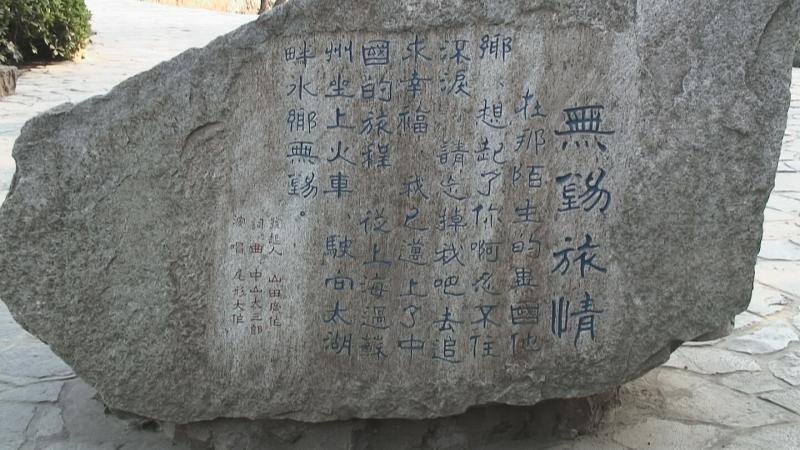 無錫旅情
在那陌生的異國他
鄉、想起了你啊忍不住
淚 請忘掉我吧去追
求幸福 我已邁上了中
國的旅程 從上海過蘇
州坐上火車、駛向太湖
畔水鄉無錫。
發起人 山田廣作
詞、曲 中山大三郎
演 唱 尾形大作